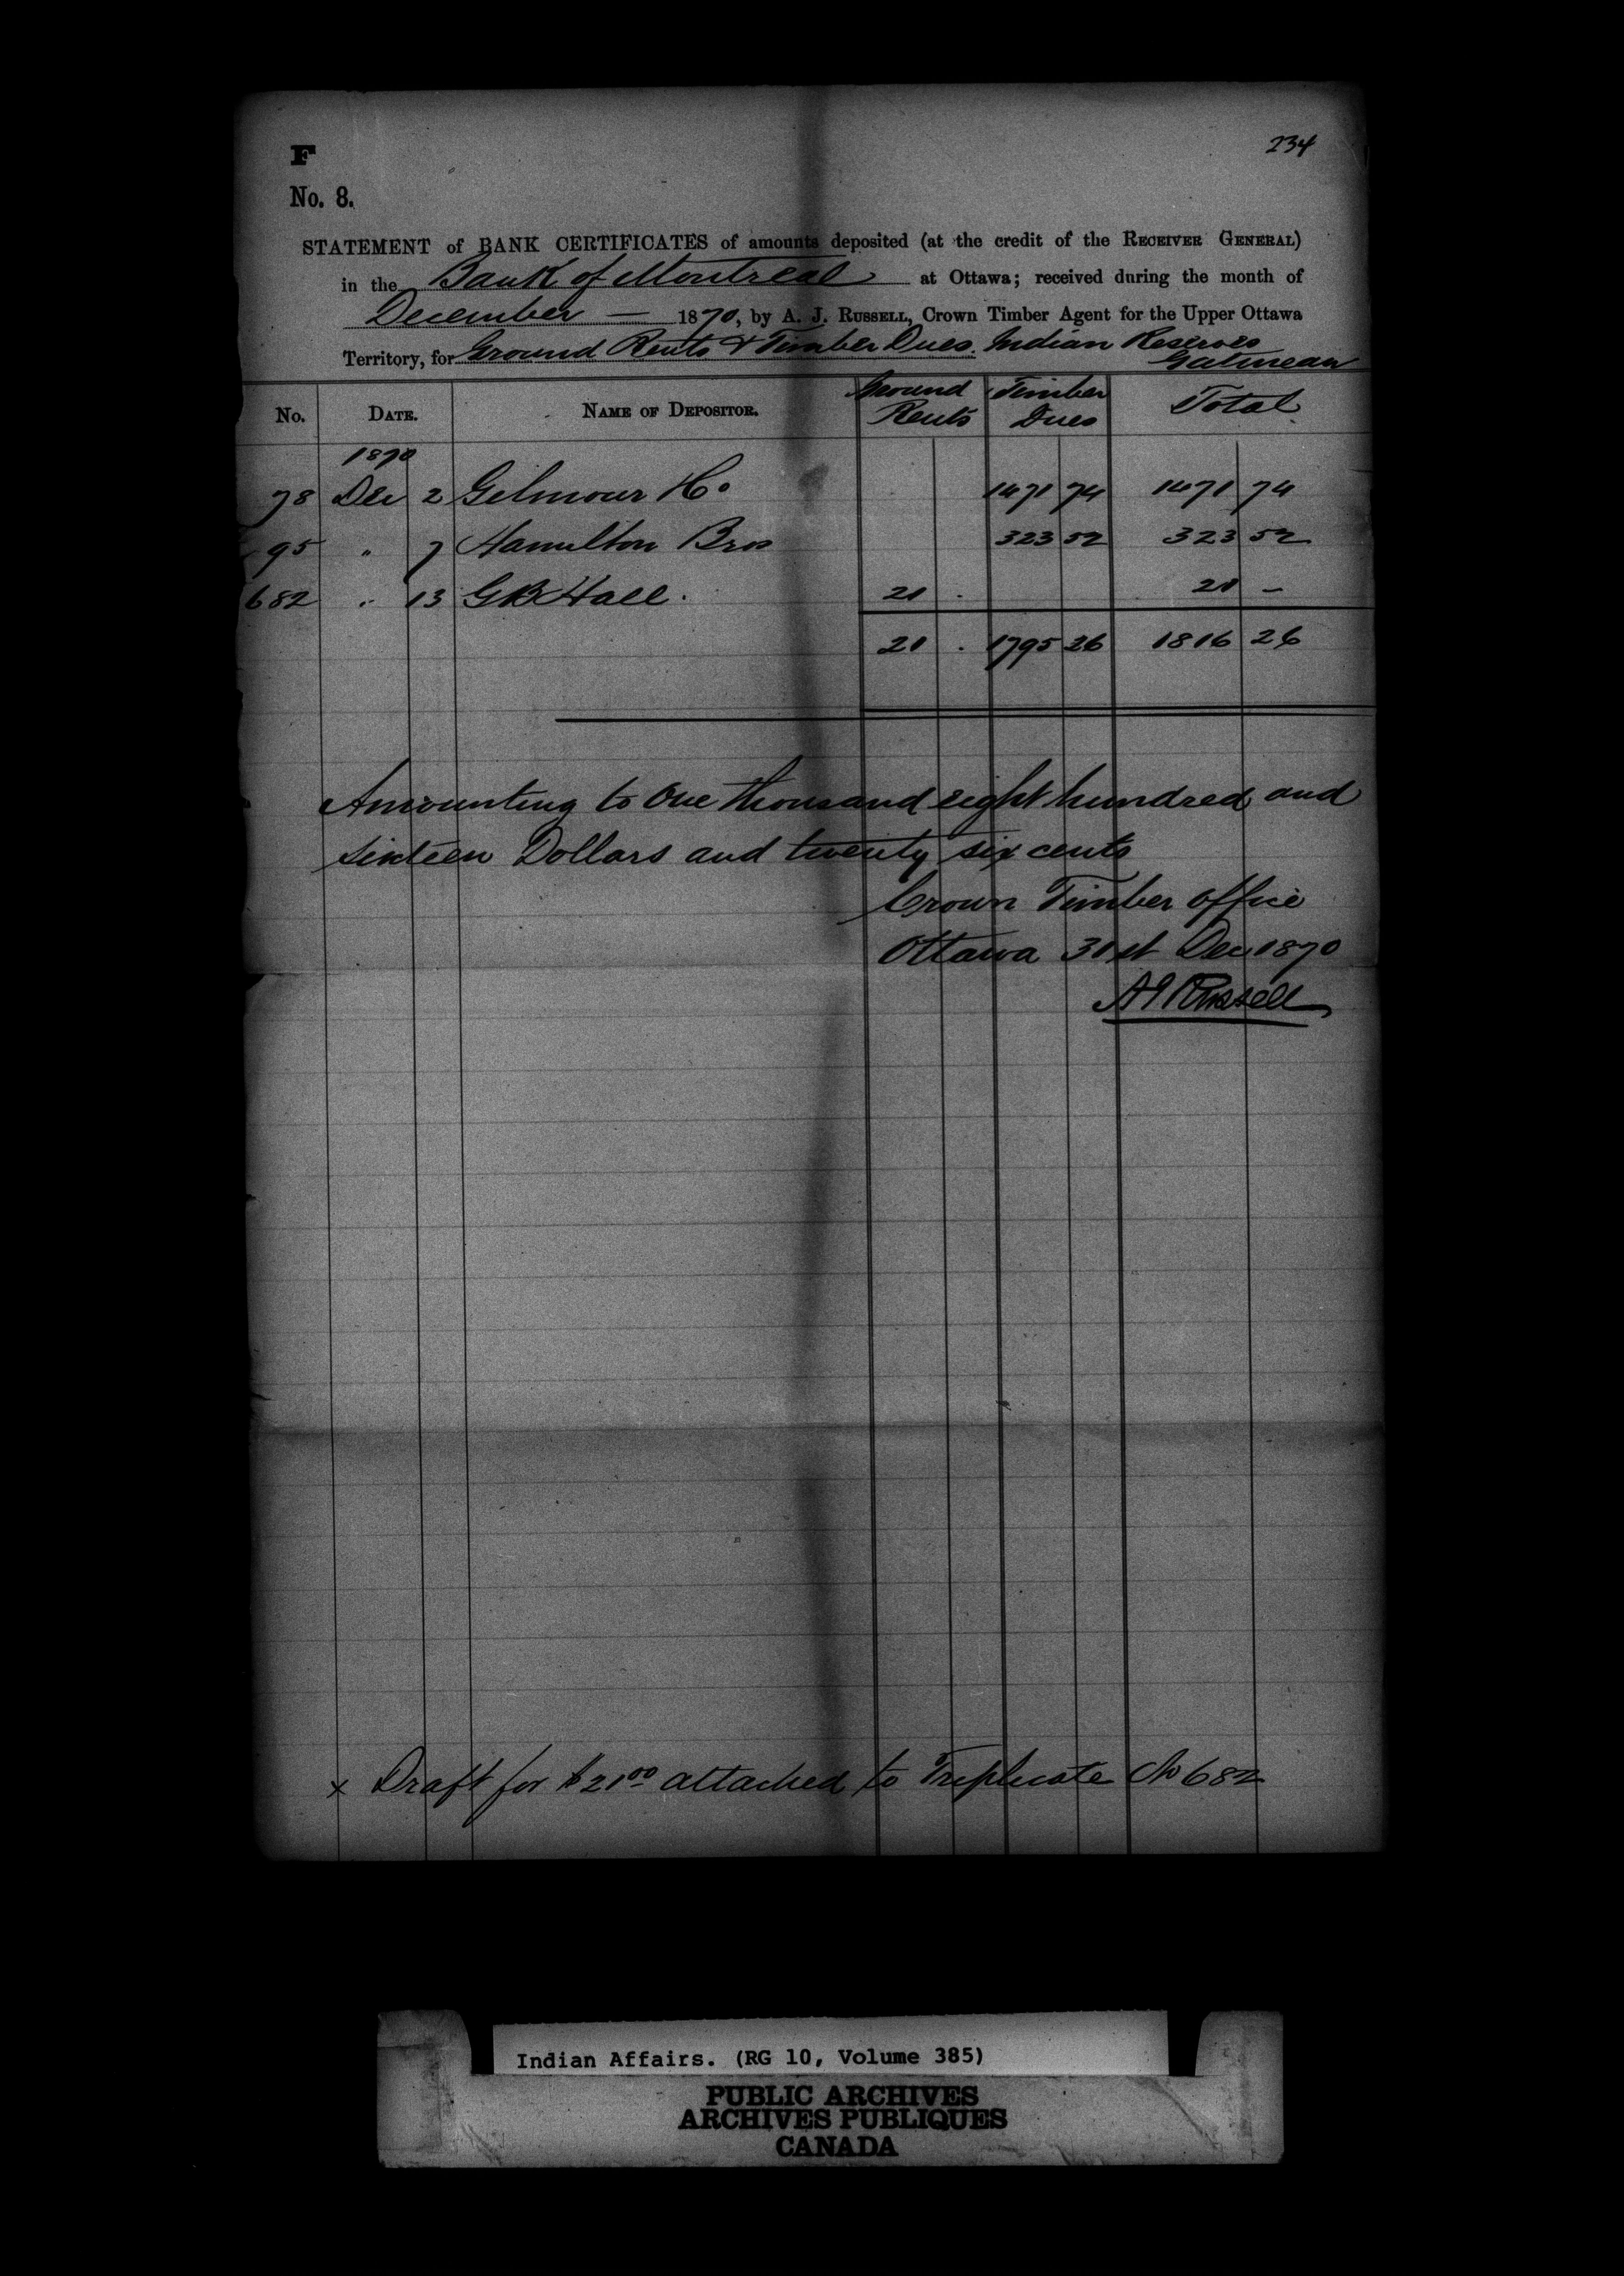 F
234
No. 8.
STATEMENT of BANK CERTIFICATES of amounts deposited (at the credit of the RECEIVER GENERAL)
in the Bank of Montreal at Ottawa; received during the month of
December — 1870, by A. J. RUSSELL, Crown Timber Agent for the Upper Ottawa
Territory, for Ground Rents & Timber Dues. Indian Reserves
Gatineau
No. DATE. NAME OF DEPOSITOR. Ground Rents Timber Dues Total
1870
78 Dec 2 Gilmour & Co 1471 74 1471 74
95 " 7 Hamilton Bros 323 52 323 52
682 " 13 G B Hall. 21 . 21 —
21 . 1795 26 1816 26
Amounting to One thousand eight hundred and
sixteen Dollars and twenty six cents
Crown Timber office
Ottawa 31st Dec 1870
A J Russell
x Draft for $21 00 attached to Triplicate No 682
Indian Affairs. (RG 10, Volume 385)
PUBLIC ARCHIVES
ARCHIVES PUBLIQUES
CANADA